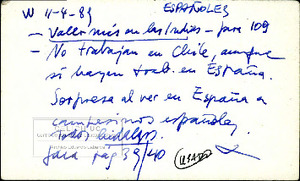 W 11-4-83 ESPAÑOLES
- Valer más en las Indias - para 109
- No trabajan en Chile, aunque
sí hayan trab. en España.
Sorpresa al ver en España a
campesinos españoles,
Todos hidalgos.
Gára pág 39/40 (USADO)